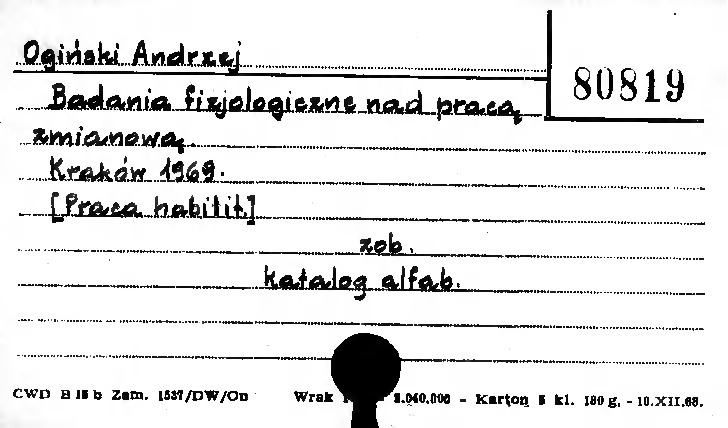 Ogiński Andrzej
80819
Badania fizjologiczne nad pracą
zmianową.
Kraków 1969.
[Praca habilit.]
zob.
katalog alfab.
CWD B 15 b Zam. 1537/DW/On Wrak 2.040.000 - Karton 5 kl. 180 g. - 10.XII.68.